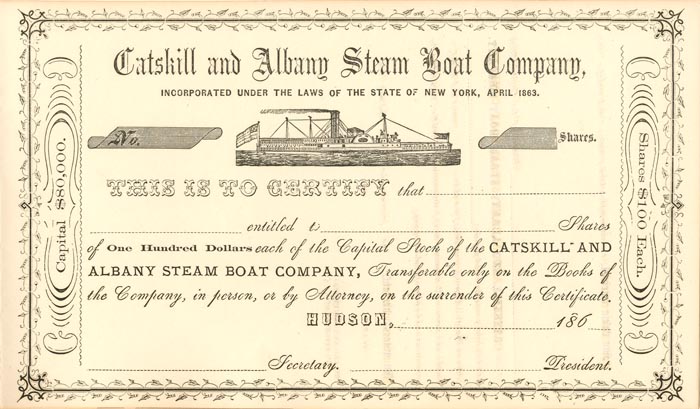 Catskill and Albany Steam Boat Company,
INCORPORATED UNDER THE LAWS OF THE STATE OF NEW YORK, APRIL 1863.
No.
Shares.
Capital $80,000.
Shares $100 Each.
THIS IS TO CERTIFY that
entitled t Shares
of One Hundred Dollars each of the Capital Stock of the CATSKILL AND
ALBANY STEAM BOAT COMPANY, Transferable only on the Books of
the Company, in person, or by Attorney, on the surrender of this Certificate.
HUDSON, 186
Secretary. President.